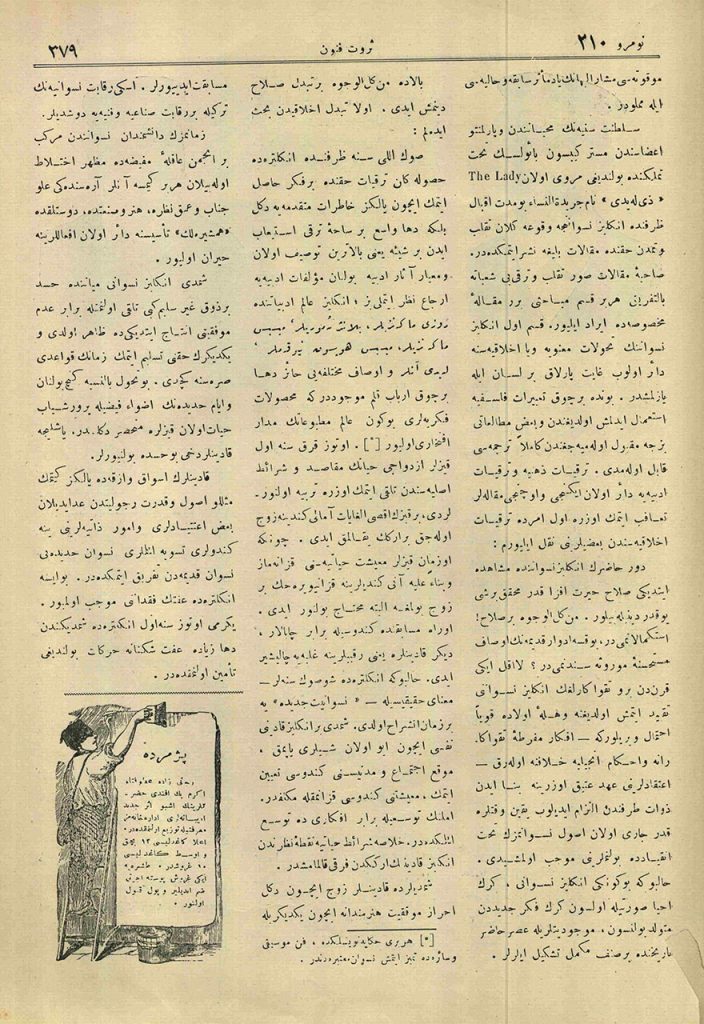 نومرو ٣١٠
ثروت فنون
٣٧٩
موقوته‌سی مشارالیهانك یادمآثر سابقه وحالیه‌سی
ایله مملودر .
سلطنت سنیه‌نك محباندن وپارلمنتو
اعضاسندن مستر کیبسون بائولسك تحت
تملکنده بولندیغی مروی اولان The Lady
« ذی‌له‌یدی » نام جریدة‌النساء بومدت اقبال
ظرفنده انکلیز نسوانجه وقوعه کلان تقلب
وتمدن حقنده مقالات بلیغه نشر ایتمکده‌در.
صاحبۀ مقالات صور تقلب وترقی‌یی شعباته
بالتفریق هر بر قسم مباحثی برر مقالۀ
مخصوصه‌ده ایراد ایلیور. قسم اول انکلیز
نسواننك تحولات معنویه ویا اخلاقیه‌سنه
دائر اولوب غایت پارلاق بر لسان ایله
یازلمشدر . بونده برچوق تعبیرات فلسفیه
استعمال ایدلمش اولدیغندن وبعض مطالعاتی
بزجه مقبول اوله‌میه‌جغندن کاملاً ترجمه‌سی
قابل اوله‌مدی . ترقیات ذهنیه وترقیات
ادبیه‌یه دائر اولان ایکنجی واوچنجی مقاله‌لر
تعاقب ایتمك اوزره اول امرده ترقیات
اخلاقیه‌سندن بعضلرینی نقل ایلیورم :
دور حاضرك انکلیز نسواننده مشاهده
ایتدیکی صلاح حیرت افزا قدر محقق برشی
یوقدر دینیله‌بیلور . من‌کل‌الوجوه بر صلاح!
مستحسنۀ موروثه‌سندنمی‌در ؟ لااقل ایکی
قرن‌دن برو تقوا کارلغك انکلیز نسوانی
تقید ایتمش اولدیغنه وهله اولاده قویاً
احتمال ویریلورکه — افکار مفرطۀ تقواکا.
رانه واحکام انجیلیه خلافنه اوله‌رق —
اعتقادلرینی عهد عتیق اوزرینه بنا ایدن
ذوات طرفندن التزام ایدیلوب یقین وقتلره
قدر جاری اولان اصول نسوانمزك تحت
انقیادده بولنملرینی موجب اولمشیدی .
حالبوکه بوکونکی انکلیز نسوانی ، کرك
احیا صورتیله اولسون کرك فکر جدیددن
متولد بولنسون ، موجودیتلریله عصر حاضر
تاریخنده بر صنف مکمل تشکیل ایلرلر .
بالاده من‌کل‌الوجوه بر تبدل صلاح
دینمش ایدی . اولا تبدل اخلاقیدن بحث
ایده‌لم :
صوك اللی سنه ظرفنده انکلتره‌ده
حصوله کلن ترقیات حقنده بر فکر حاصل
ایتمك ایچون یالکز خاطرات متقدمه‌یه دکل
بلکه دها واسع بر ساحۀ ترقی استیعاب
ایدن بر شیئه یعنی بالاترین توصیف اولان
ومعیار آثار ادبیه بولنان مؤلفات ادبیه‌یه
ارجاع نظر ایتملی‌ز ؛ انکلیز عالم ادبیاتنده
لیدی آند و اوصاف مختلفه‌یی حائز دها
برچوق ارباب قلم موجوددرکه محصولات
فکریه‌لری بوکون عالم مطبوعاتك مدار
افتخاری اولیور [*] . اوتوز قرق سنه اول
قیزلر ازدواجی حیاتك مقاصد و شرائط
اصلیه‌سندن تلقی ایتمك اوزره تربیه اولنور-
لردی، برقیزك اقصی‌الغایات آمالی کندینه زوج
اوله‌جق برارکك بقالمق ایدی . چونکه
اوزمان قیزلر معیشت حیاتیه‌سنی قزانه‌ماز
وبناءً علیه آنی کندیلرینه قزانیویره‌جك بر
زوج بولمغه البته محتاج بولنور ایدی .
اوراه مسابقتده کندوسیله برابر چابالار ،
دیکر قادینلره یعنی رقیبلرینه غلبه‌یه چالیشیر
ایدی. حالبوکه انکلتره‌ده شو صوك سنه‌لر —
معنای حقیقیسیله — « نسوانیت جدیده » یه
برزمان انشراح اولدی. شمدی بر انکلیز قادینی
نفسی ایچون ایو اولان شیلری یاپمق ،
موقع اجتماعی و مدنیسنی کندوسی تعیین
ایتمك ، معیشتنی کندوسی قزانمقله مکلفدر.
املنك توسعیله برابر افکاری ده توسع
ائلمکده‌در. خلاصه شرائط حیاتیه نقطۀ نظرندن
انکلیز قادینك ارککدن فرقی قالمامشدر.
شمدیلرده قادینلر زوج ایچون دکل
احراز موفقیت هنرمندانه ایچون یکدیکریله
[*] هر بری حکایه‌نویسلکده ، فن موسیقی
وسائره‌ده تمیز ایتمش نسوان معتبره‌دندر .
مسابقت ایدییورلر . اسکی رقابت نسوانیه‌نك
ترکیله بر رقابت صناعیه وفنیه‌یه دوشدیلر.
زمانمزك دانشمندان نسوانندن مرکب
بر انجمن عاقله مقبضه‌ده مظهر اختلاط
اوله‌بیلان هر بر کیمسه آنلر آره‌سنده‌کی علو
جناب وعمق نظره، هنر وصنعتده، دوستلقده
«همشیره‌لك» تأسیسنه دائر اولان افعاللرینه
حیران اولیور .
شمدی انکلیز نسوانی میاننده حسد
بر ذوق غیر سلیم کبی تلقی اولنمغله برابر عدم
موفقیتی انتاج ایتدیکی‌ده ظاهر اولدی و
یکدیکرك حقنی تسلیم ایتمك زمانك قواعدی
صره‌سنه کچدی . بوتحول بالنسبه کنج بولنان
و ایام جدیده‌نك اضواء فیضیله پرور شیاب
حیات اولان قیزلره منحصر دکلدر. یاشلیجه
قادینلر دخی بوحسده بولنیورلر.
قادینلرك اسواق وازقه‌ده یالکز کیتمك
مثللو اصول وقدرت رجولیتدن عد ایدیلان
بعض اعتیادلری وامور ذاتیه‌لرینی ینه
کندولری تسویه ایتملری نسوان جدیده‌یی
نسوان قدیمه‌دن تفریق ایتمکده‌در . بو ایسه
انکلتره‌ده عفتك فقدانی موجب اولمیور .
یکرمی اوتوز سنه اول انکلتره‌ده شمدیکندن
دها زیاده عفت شکنانه حرکات بولندیغی
تأمین اولنمقده‌در .
پژمرده
رجائی زاده عطوفتلو
اکرم بك افندی حضر-
تلرینك اشبو اثر جدید
ادیبانه‌لری اداره‌خانه‌مز
معرفتیله توزیع اولنمقده‌در.
اعلا کاغدلیسی ١٢ بچق
و اوسط کاغدلیسی
١٠ غروشدر . طشره‌یه
ایکی غروش پوسته اجرتی
ضم ایدیلیر و پول قبول
اولنور .